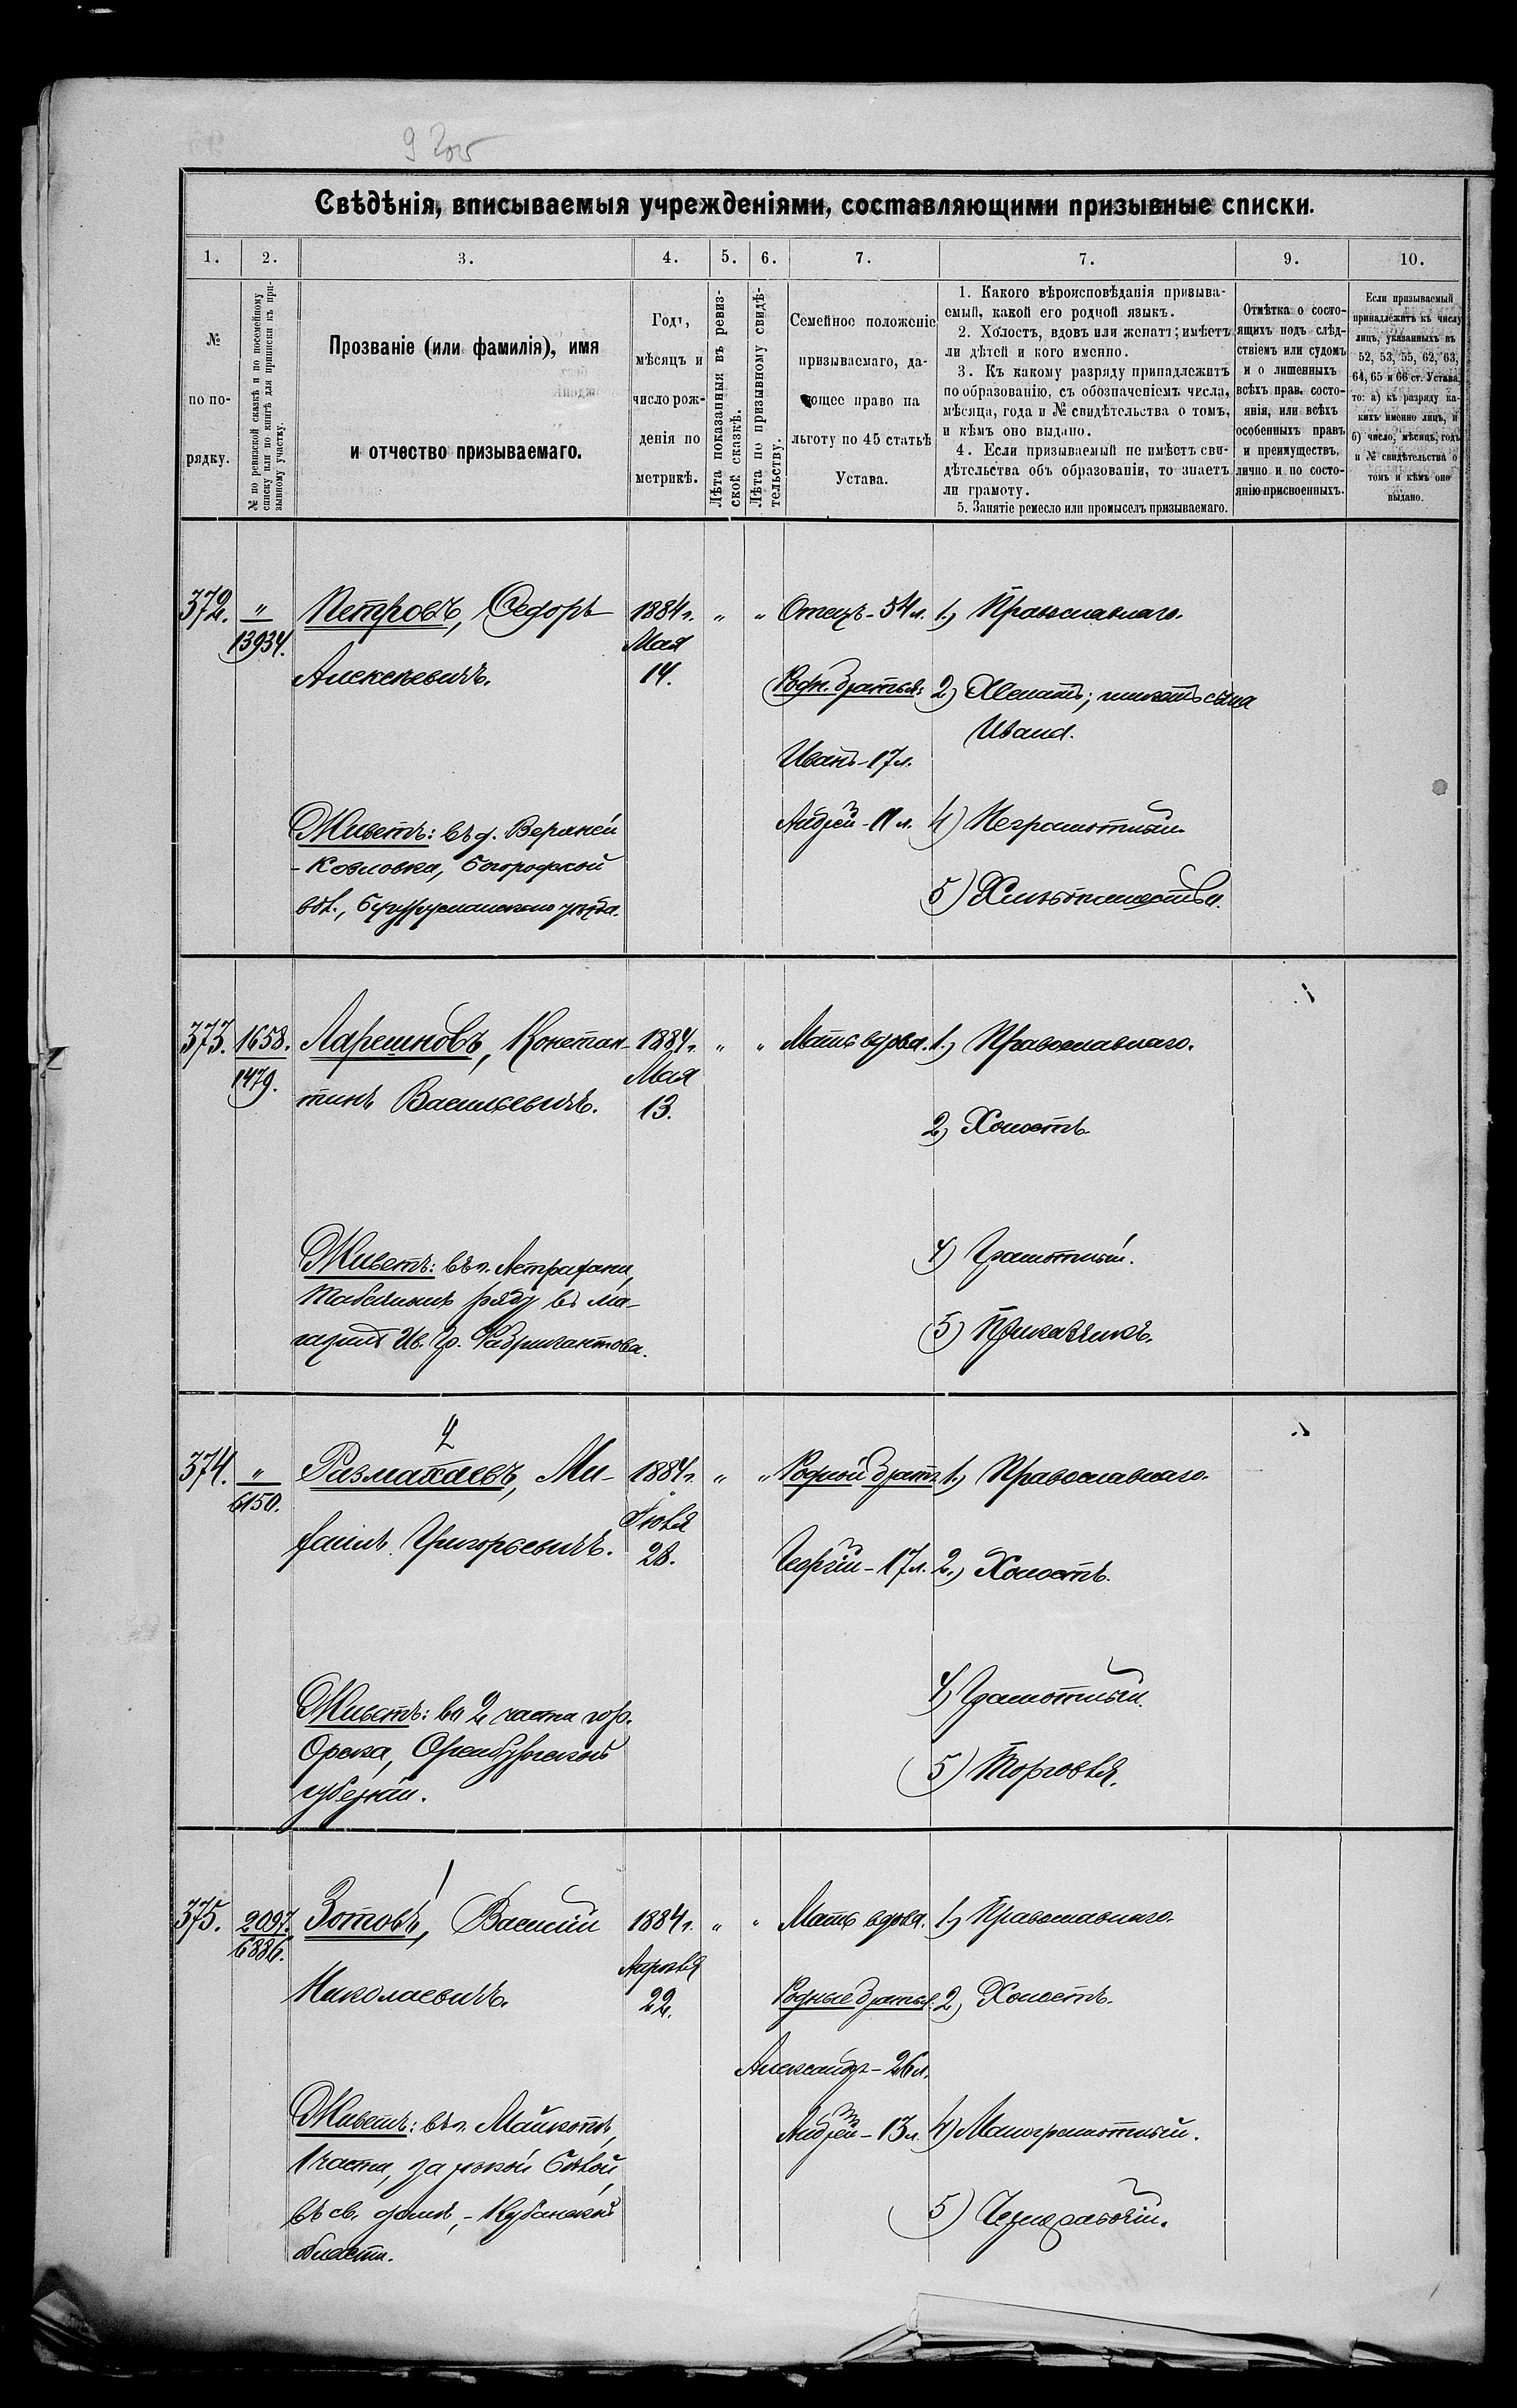 Свѣдѣнія, вписываемыя учрежденіями, составляющими призывные списки.
1. 2. 3. 4. 5. 6. 7. 7. 9. 10.
№
по по-
рядку.
№ по ревизской сказкѣ и по посемейному
списку или по книгѣ для приписки къ при-
зывному участку.
Прозваніе (или фамилія), имя
и отчество призываемаго.
Годъ,
мѣсяцъ и
число рож-
денія по
метрикѣ.
Лѣта показанныя въ ревиз-
ской сказкѣ.
Лѣта по призывному свидѣ-
тельству.
Семейное положеніе
призываемаго, да-
ющее право на
льготу по 45 статьѣ
Устава.
1. Какого вѣроисповѣданія призыва-
емый, какой его родной языкъ.
2. Холостъ, вдовъ или женатъ; имѣетъ
ли дѣтей и кого именно.
3. Къ какому разряду принадлежитъ
по образованію, съ обозначеніемъ числа,
мѣсяца, года и № свидѣтельства о томъ,
и кѣмъ оно выдано.
4. Если призываемый не имѣетъ сви-
дѣтельства объ образованіи, то знаетъ
ли грамоту.
5. Занятіе ремесло или промыселъ призываемаго.
Отмѣтка о состо-
ящихъ подъ слѣд-
ствіемъ или судомъ
и о лишенныхъ
всѣхъ прав. состо-
янія, или всѣхъ
особенныхъ правъ
и преимуществъ,
лично и по состо-
янію присвоенныхъ.
Если призываемый
принадлежитъ къ числу
лицъ, указанныхъ въ
52, 53, 55, 62, 63,
64, 65 и 66 ст. Устава,
то: а) къ разряду ка-
кихъ именно лицъ, и
б) число, мѣсяцъ, годъ
и № свидѣтельства о
томъ и кѣмъ оно
выдано.
372. " Петровъ, Ѳедоръ 1884 г. " " Отецъ - 54 л. 1.) Православнаго.
13934. Мая
Алексѣевичъ. 14. Родн. братья: 2) Женатъ; имѣетъ сына
Ивана.
Иванъ - 17 л.
Живетъ: въ д. Верхней Андрей - 11 л. 4) Неграмотный.
- Козловка, Богородской
вол., Бугурусланскаго уѣзда. 5) Хлѣбопашество.
373. 1658. Ларешновъ, Констан- 1884 г. " " Мать вдова. 1.) Православнаго.
1479. Мая
тинъ Васильевичъ. 13. 2) Холостъ.
Живетъ: въ г. Астрахани, 4) Грамотный.
Табачномъ ряду въ ма-
газинѣ Ив. Гр. Фабрикантова. 5) Приказчикъ.
2
374. " Размахаевъ, Ми- 1884 г. " " Родной братъ 1.) Православнаго.
6150. Іюля
хаилъ Григорьевичъ. 28. Георгій - 17 л. 2.) Холостъ.
Живетъ: во 2 части гор. 4) Грамотный.
Орска, Оренбургской 5) Торговля.
губерніи.
375. 2097. Зотовъ, Василій 1884 г. " " Мать вдова. 1.) Православнаго.
6886. Апрѣля
Николаевичъ. 22. Родные братья. 2) Холостъ.
Александръ - 26 л.
Живетъ: въ г. Майкопѣ, Андрей - 13 л. 4) Малограмотный.
1 части, за рѣкой Бѣлой,
въ св. домѣ, - Кубанской 5) Чернорабочій.
области.